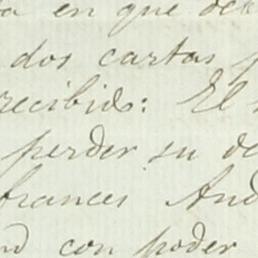 en que de
dos cartas
recibido: El
perder su de
frances And
con poder